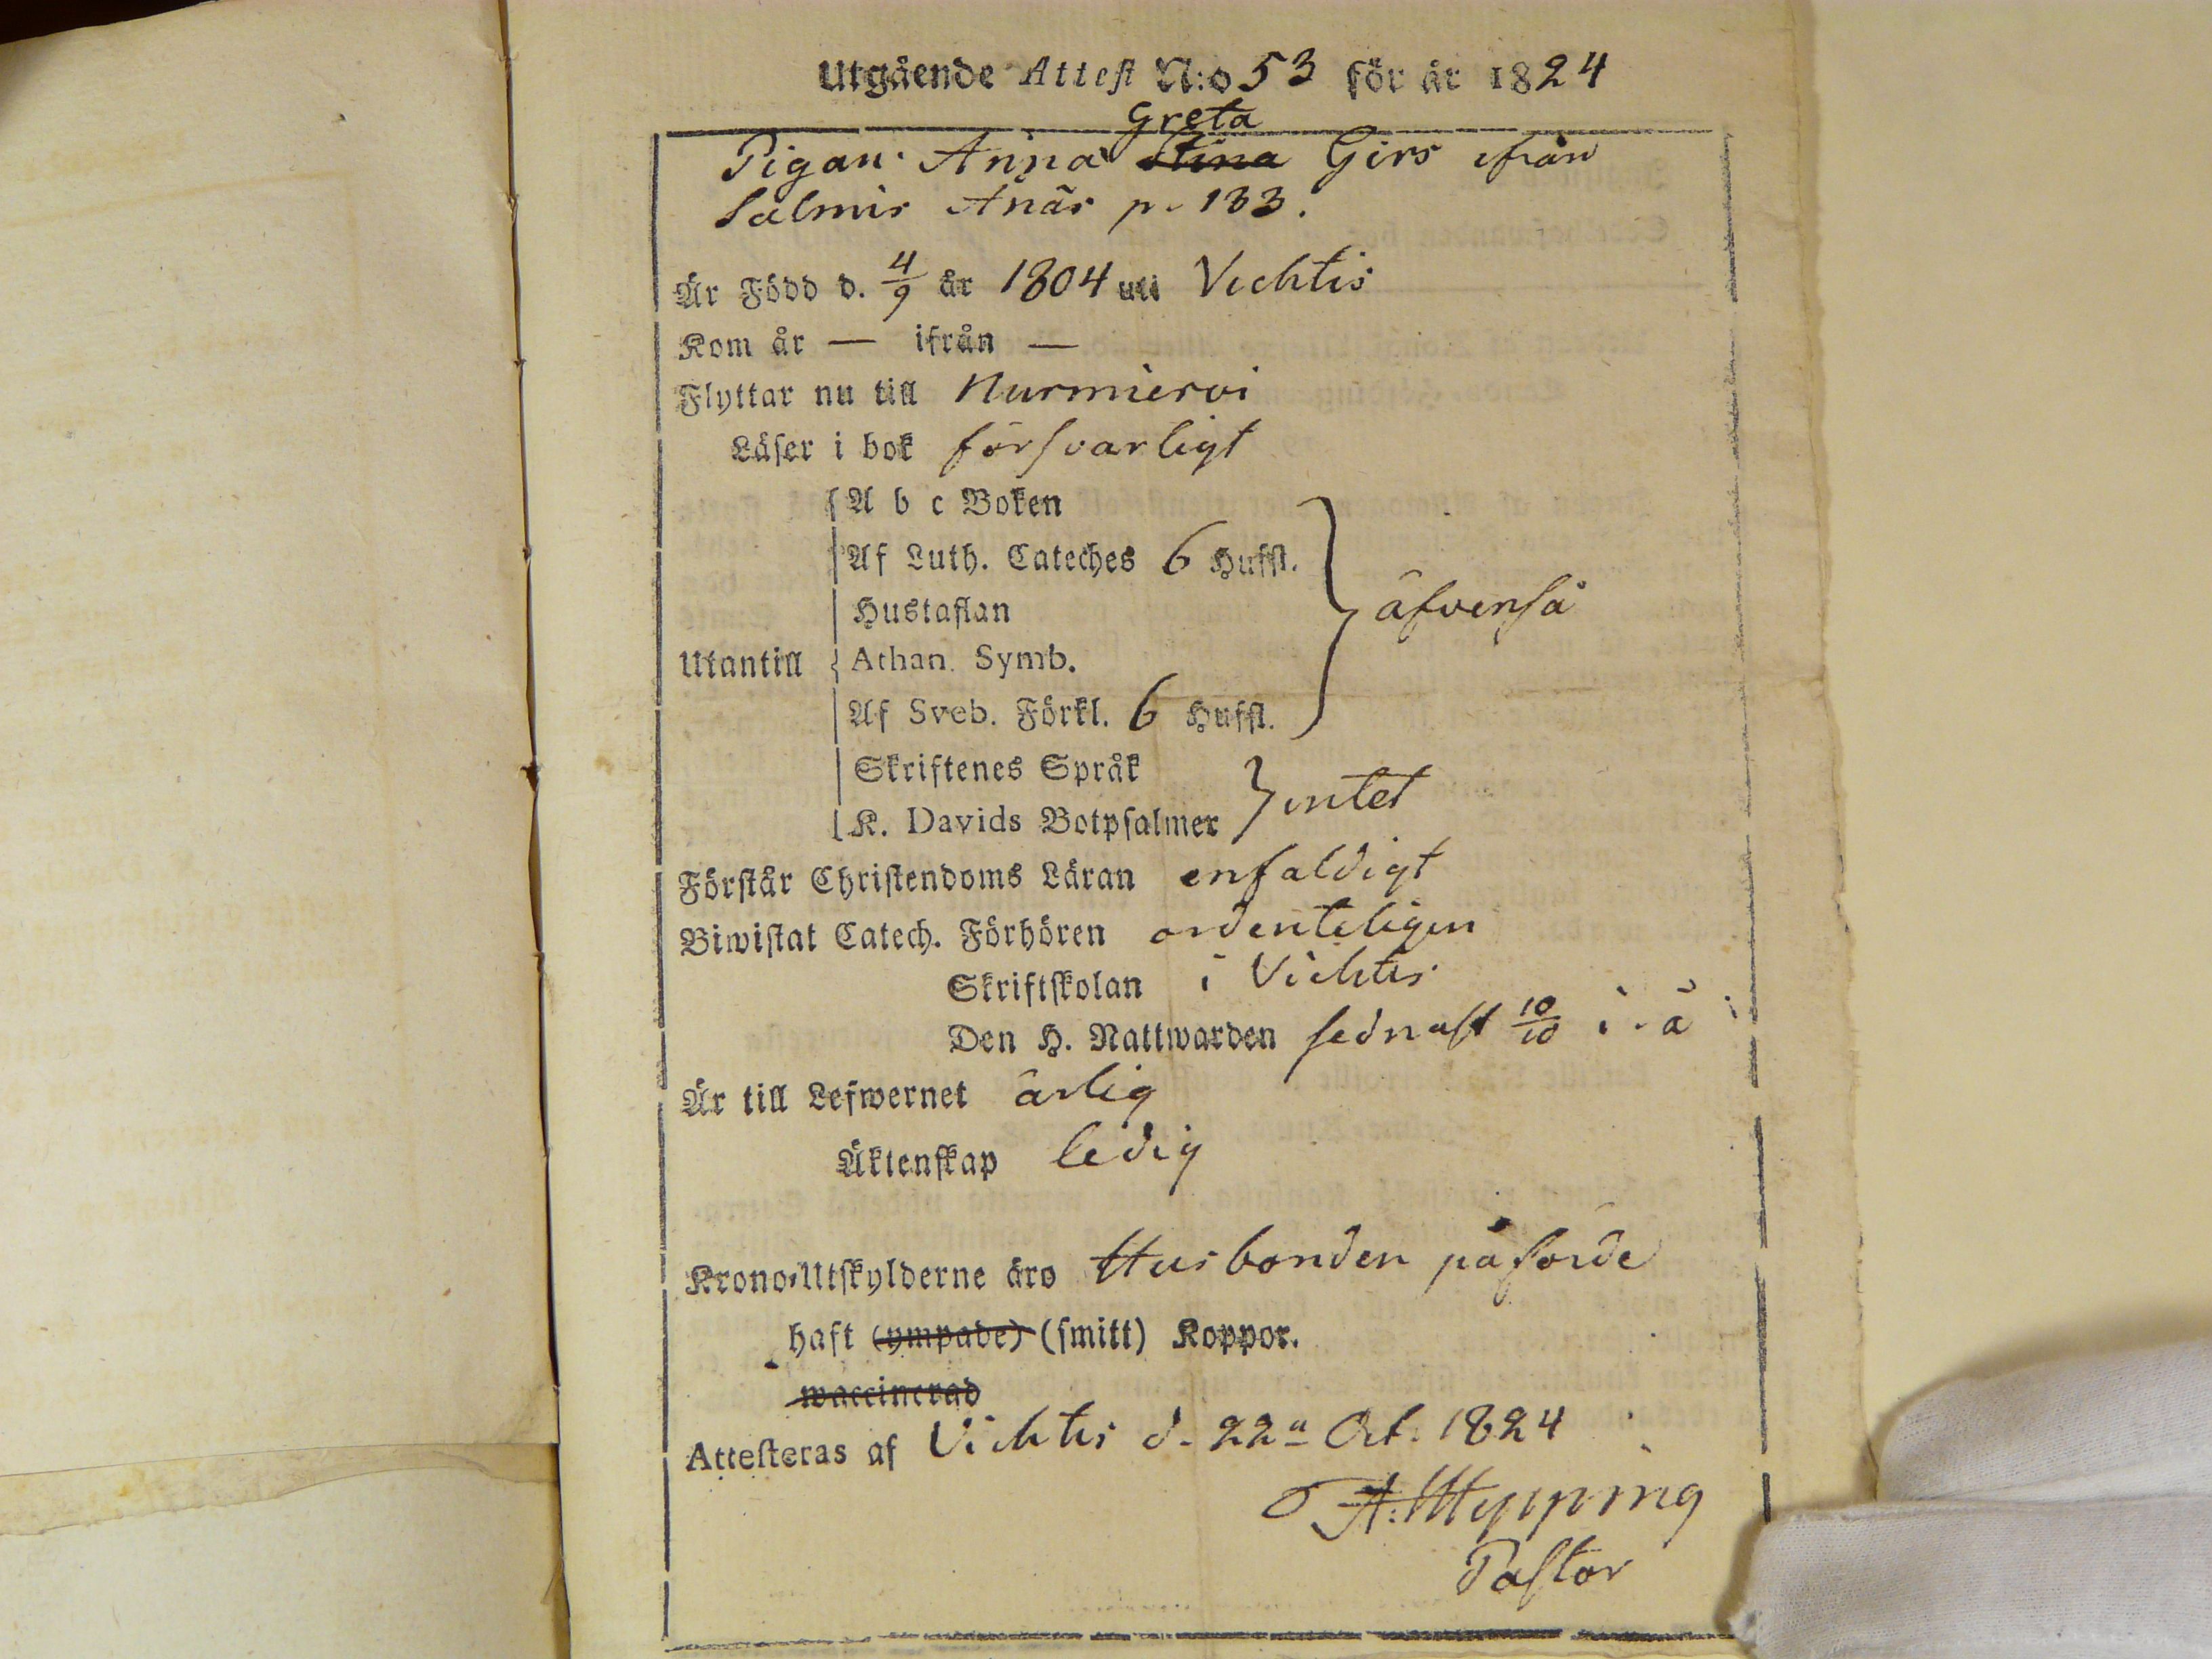 Utgående Attest N:o 53 för år 1824
Greta
Pigan Anna Stina Girs ifrån
Salmis Anäs p. 133.
Är Född d. 4/9 år 1804 uti Vichtis
Kom år — ifrån —
Flyttar nu till Nurmiervi
Läser i bok försvarligt
A b c Boken
Af Luth. Cateches 6 Hufst.
Hustaflan
äfvenså
Utantill Athan. Symb.
Af Sveb. Förkl. 6 Hufst.
Skriftenes Språk
intet
K. Davids Botpsalmer
Förstår Christendoms Läran enfaldigt
Biwistat Catech. Förhören ordenteligen
Skriftskolan i Vichtis
Den H. Nattwarden sednast 10/10 i. å
Är till Lefwernet ärlig
Äktenskap ledig
Krono-Utskylderne äro Husbonden påförde
haft (ympade) (smitt) Koppor.
waccinerad
Attesteras af Vichtis d. 22a Oct. 1824
A. Hypping
Pastor